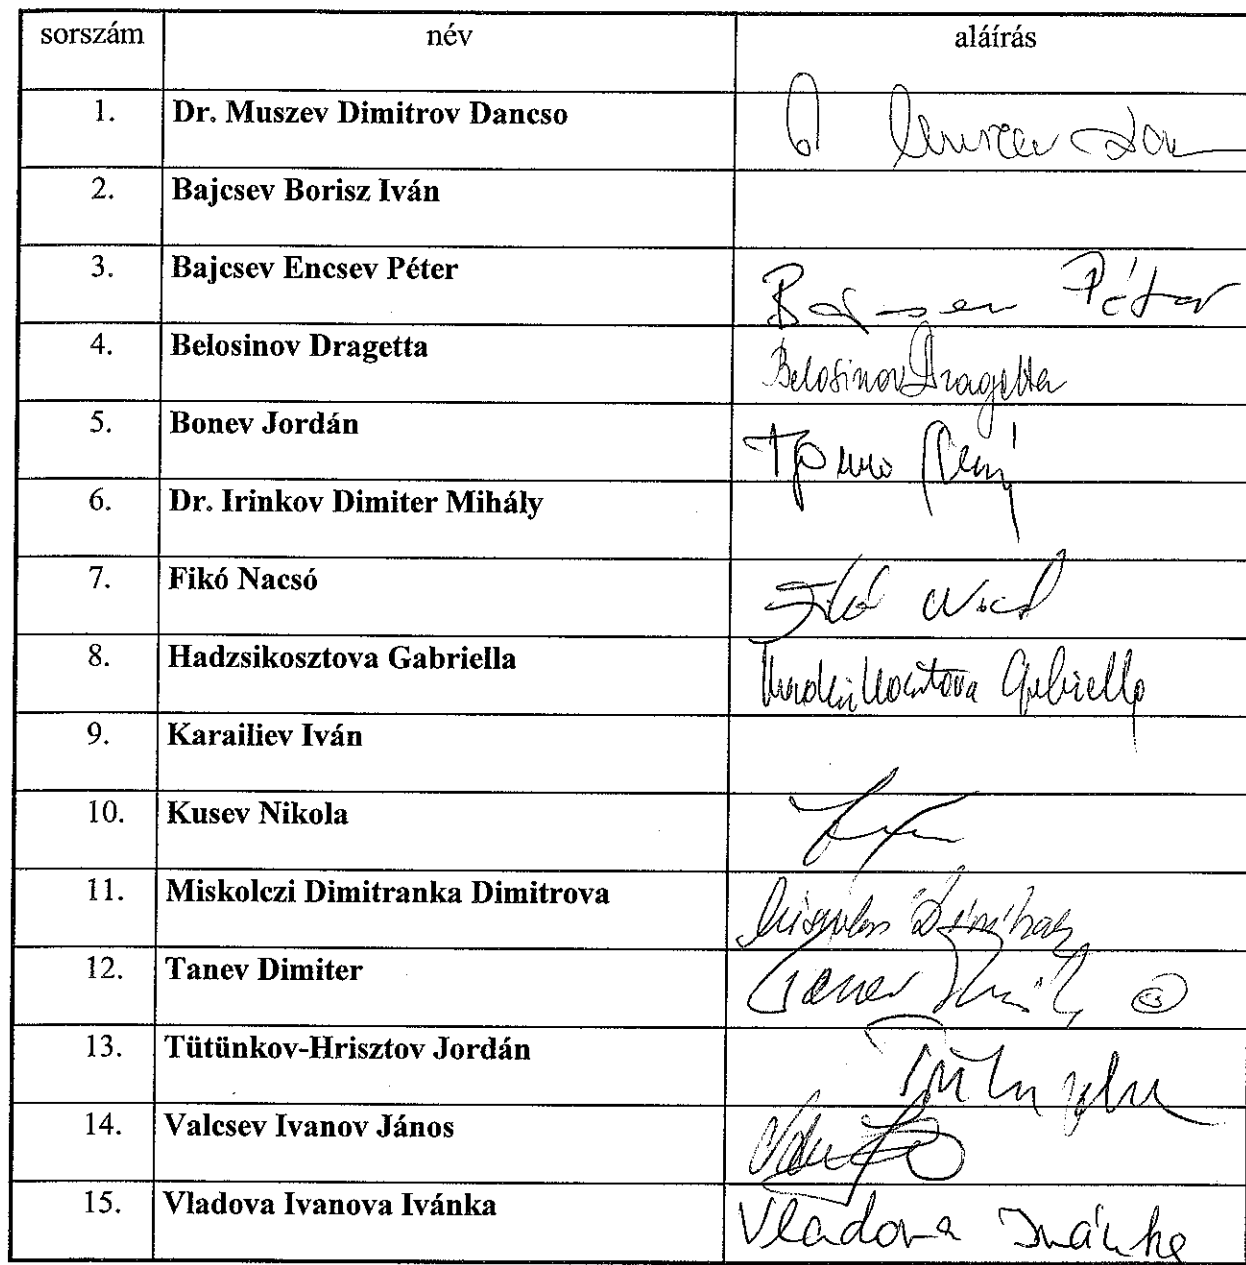 sorszám név aláírás
1. Dr. Muszev Dimitrov Dancso
2. Bajcsev Borisz Iván
3. Bajcsev Encsev Péter Bajcsev Péter
4. Belosinov Dragetta Belosinov Dragetta
5. Bonev Jordán
6. Dr. Irinkov Dimiter Mihály
7. Fikó Nacsó Fikó
8. Hadzsikosztova Gabriella Hadzsikosztova Gabriella
9. Karailiev Iván
10. Kusev Nikola
11. Miskolczi Dimitranka Dimitrova
12. Tanev Dimiter Tanev
13. Tütünkov-Hrisztov Jordán
14. Valcsev Ivanov János
15. Vladova Ivanova Ivánka Vladova Ivánka